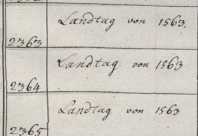 Landtag von 1563.
2363
Landtag von 1563
2364
Landtag von 1563
2365